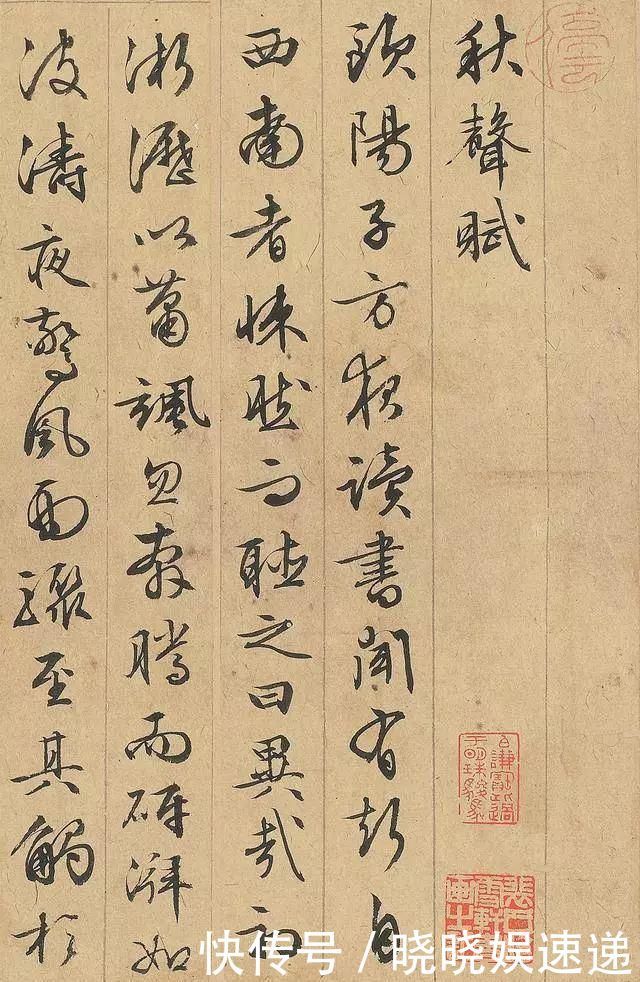 秋聲賦
歐陽子方夜讀書聞有聲自
西南者悚然而聽之曰異哉初
淅瀝以蕭颯忽奔騰而砰湃如
波濤夜驚風雨驟至其觸於
快传号 / 晓晓娱速递